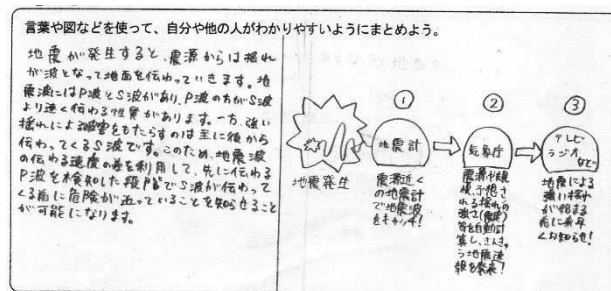 言葉や図などを使って、自分や他の人がわかりやすいようにまとめよう。
地震が発生すると、震源からは揺れ
が波となって地面を伝わっていきます。地
震波にはP波とS波があり、P波の方がS波
より速く伝わる性質があります。一方、強い
揺れによる被害をもたらすのは主に後から
伝わってくるS波です。このため、地震波
の伝わる速度の差を利用して、先に伝わる
P波を検知した段階でS波が伝わって
くる前に危険が迫っていることを知らせること
が可能になります。
地震発生
①
地震計
震源近く
の地震計
で地震波
をキャッチ!
②
気象庁
震源や規
模、予想さ
れる揺れの
強さ(震度)
等を自動計
算し、きんきゅ
う地震速
報を発表!
③
テレビ
ラジオ
など
地震による
強い揺れ
が始まる
前に素早
くお知らせ!